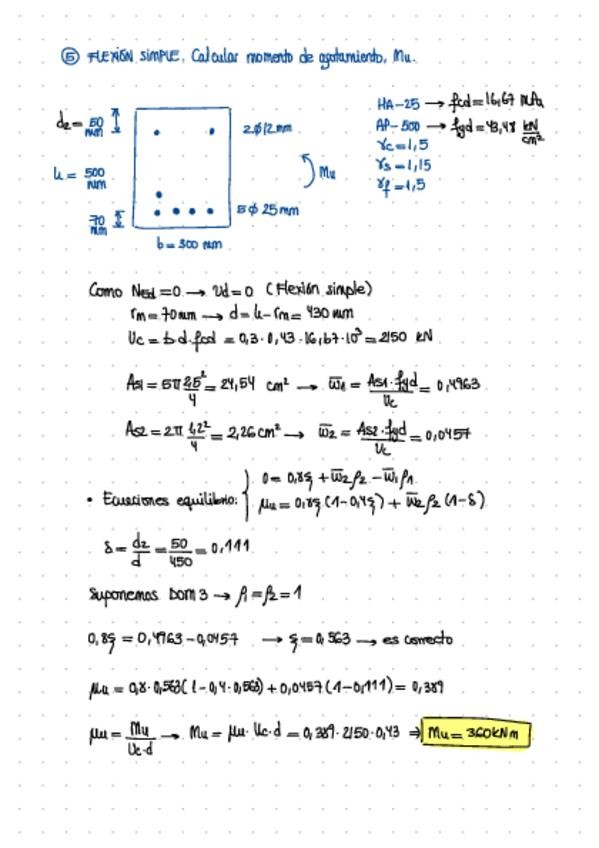 ⑤ FLEXIÓN SIMPLE. Calcular momento de agotamiento, Mu.
HA-25 → fcd = 16,67 MPa
AP-500 → fyd = 43,48 kN/cm²
γc = 1,5
γs = 1,15
γf = 1,5
d2 = 50 mm
2ϕ12mm
h = 500 mm
Mu
70 mm
5ϕ25mm
b = 300 mm
Como NEd = 0 → υd = 0 (Flexión simple)
rm = 70mm → d = h - rm = 430 mm
Uc = b·d·fcd = 0,3·0,43·16,67·10³ = 2150 kN
As1 = 5π 2,5²/4 = 24,54 cm² → ω1 = As1·fyd/Uc = 0,4963
As2 = 2π 1,2²/4 = 2,26 cm² → ω2 = As2·fyd/Uc = 0,0457
• Ecuaciones equilibrio: { 0 = 0,8ξ + ω2 β2 - ω1 β1
μu = 0,8ξ (1-0,4ξ) + ω2 β2 (1-δ)
δ = d2/d = 50/450 = 0,111
Suponemos DOM 3 → β1 = β2 = 1
0,8ξ = 0,4963 - 0,0457 → ξ = 0,563 → es correcto
μu = 0,8·0,563(1-0,4·0,563) + 0,0457(1-0,111) = 0,389
μu = Mu/Uc·d → Mu = μu·Uc·d = 0,389·2150·0,43 ⇒ Mu = 360kNm